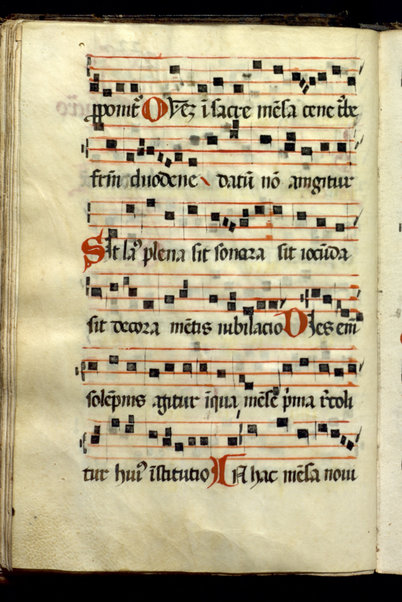 proponit᷑ Q̇vez ī sacre mēsa cene tᷓbe
frm̄ duodene datū nō ambigitur
Sit laꝰ plena sit sonora sit iocūda
sit decora mētis iubilacio Dies em̄
solēpnis agitur īqua mēse p̄ma recoli
tur huiꝰ īstitutio In hac mēsa noui